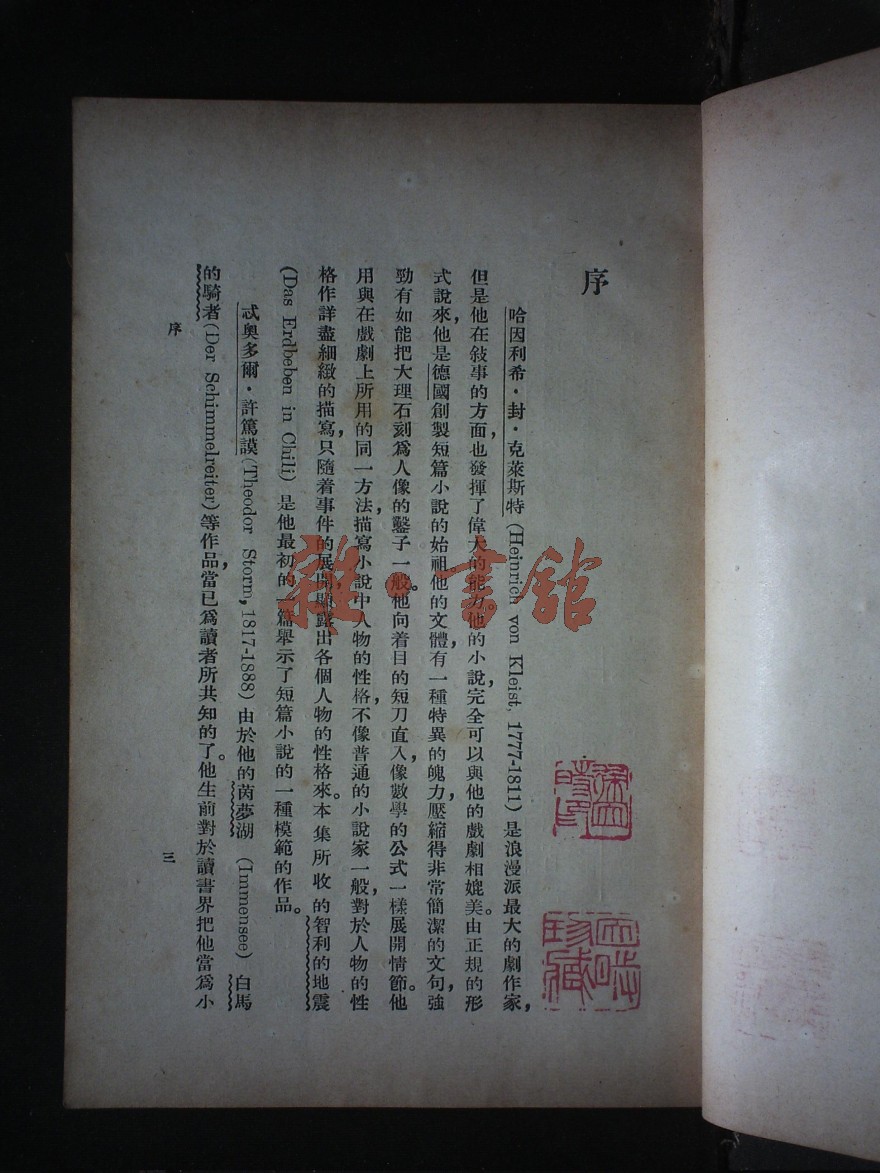 序
哈因利希·封·克萊斯特(Heinrich von Kleist, 1777-1811)是浪漫派最大的劇作家，
但是他在敍事的方面，也發揮了偉大的能力。他的小說，完全可以與他的戲劇相媲美。由正規的形
式說來，他是德國創製短篇小說的始祖。他的文體，有一種特異的魄力，壓縮得非常簡潔的文句，強
勁有如能把大理石刻爲人像的鑿子一般。他向着目的短刀直入，像數學的公式一樣展開情節。他
用與在戲劇上所用的同一方法，描寫小說中人物的性格，不像普通的小說家一般，對於人物的性
格作詳盡細緻的描寫，只隨着事件的展開顯露出各個人物的性格來。本集所收的智利的地震
(Das Erdbeben in Chili)是他最初的一篇，舉示了短篇小說的一種模範的作品。
忒奧多爾·許篤謨(Theodor Storm, 1817-1888)由於他的茵夢湖 (Immensee) 白馬
的騎者(Der Schimmelreiter)等作品，當已爲讀者所共知的了。他生前對於讀書界把他當爲小
序
三
雜·書館